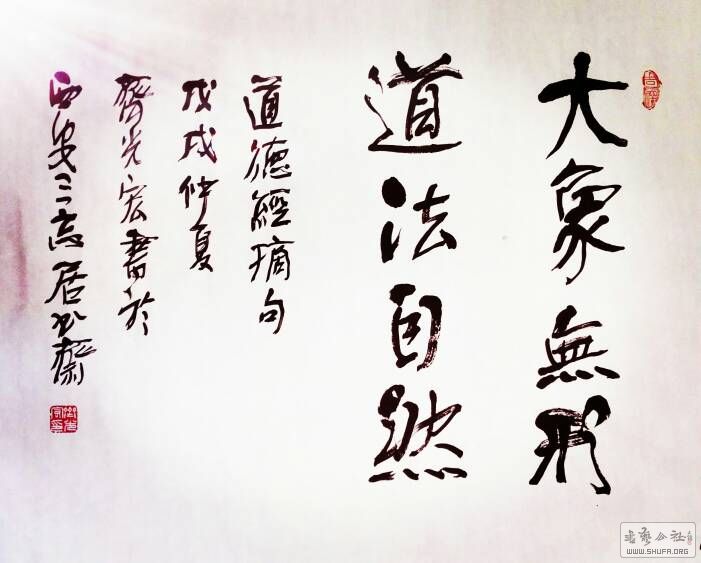 大象無形
道法自然
道德經摘句
戊戌仲夏
齊光宏書於
西安三忘居書齋
書藝公社
WWW.SHUFA.ORG